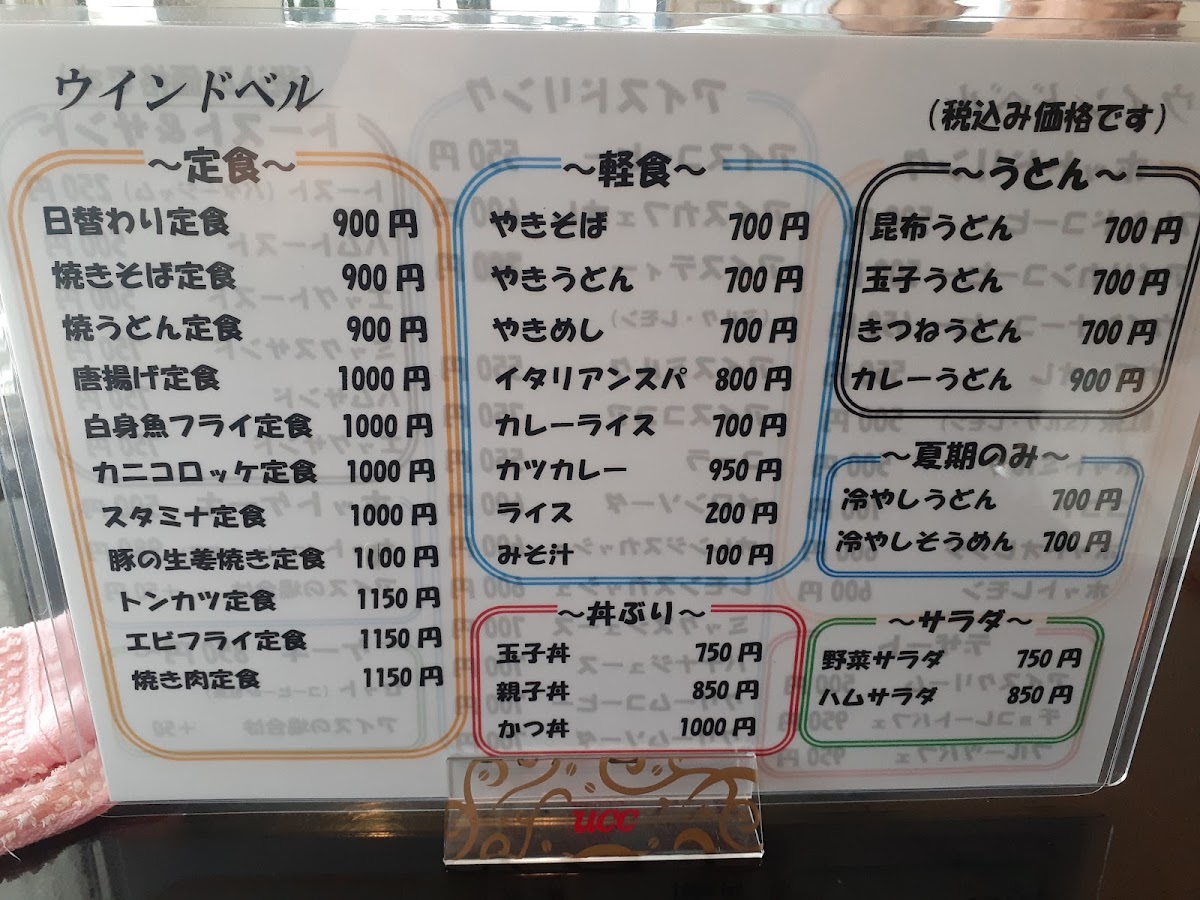 ウインドベル
(税込み価格です)
～定食～
日替わり定食 900円
焼きそば定食 900円
焼うどん定食 900円
唐揚げ定食 1000円
白身魚フライ定食 1000円
カニコロッケ定食 1000円
スタミナ定食 1000円
豚の生姜焼き定食 1100円
トンカツ定食 1150円
エビフライ定食 1150円
焼き肉定食 1150円
～軽食～
やきそば 700円
やきうどん 700円
やきめし 700円
イタリアンスパ 800円
カレーライス 700円
カツカレー 950円
ライス 200円
みそ汁 100円
～丼ぶり～
玉子丼 750円
親子丼 850円
かつ丼 1000円
～うどん～
昆布うどん 700円
玉子うどん 700円
きつねうどん 700円
カレーうどん 900円
～夏期のみ～
冷やしうどん 700円
冷やしそうめん 700円
～サラダ～
野菜サラダ 750円
ハムサラダ 850円
ucc